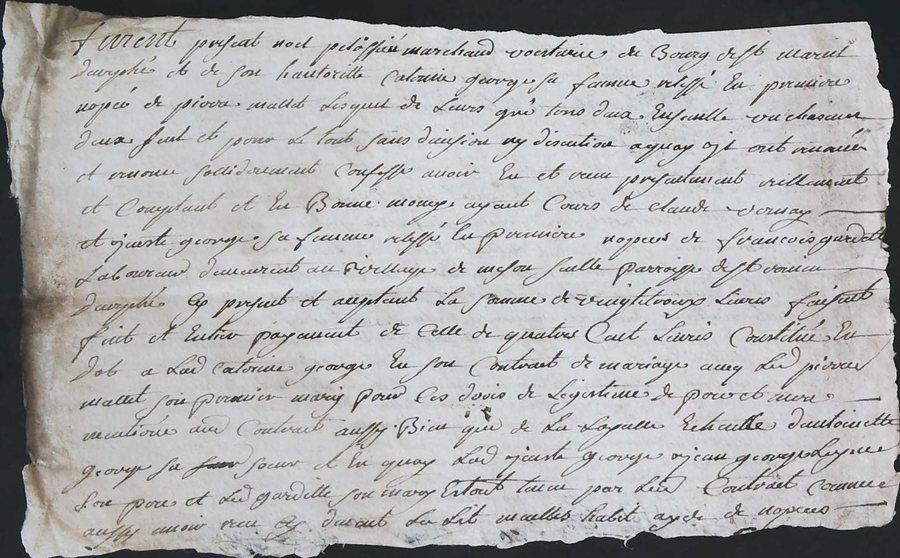 furent present noel pelossier marchand voiturie de Bourg de st martin
dauphé et de son hautorité Catorine george sa famme relessé En premiere
nopce de pierre mallet Lesquel de Leurs gré tous deux Ensenlle un chascun
deux seul et pour Le tout sans division ny discution a quoy ont renoncé
et renonce sollidérement Confesse avoir Eu et receu présentement réellement
et Comptant et En Bonne monoye ayant Cours de Claude vernay
et george sa famme relessé En premiere nopces de francois gardette
Laboureur demeurant au village de parroisse de st romain
dauphé present et aceptant La somme de vingt livres faisant
finit et Entier payement de Celle de quatres Cent Livres Constitué En
dot a Lad Catorine george En son Contrat de mariage avec Led pierre
mallet son premier mary pour Ces drois de Legistime de pere et mere
mentioné aud Contrat aussy Bien que de La Echeutte dantoinette
george sa soeur et En quoy Lad george jean george
son pere et Led gardette son mary tenu par Led Contrat Comme
aussy avoir receu devant Le Lit habit de nopces